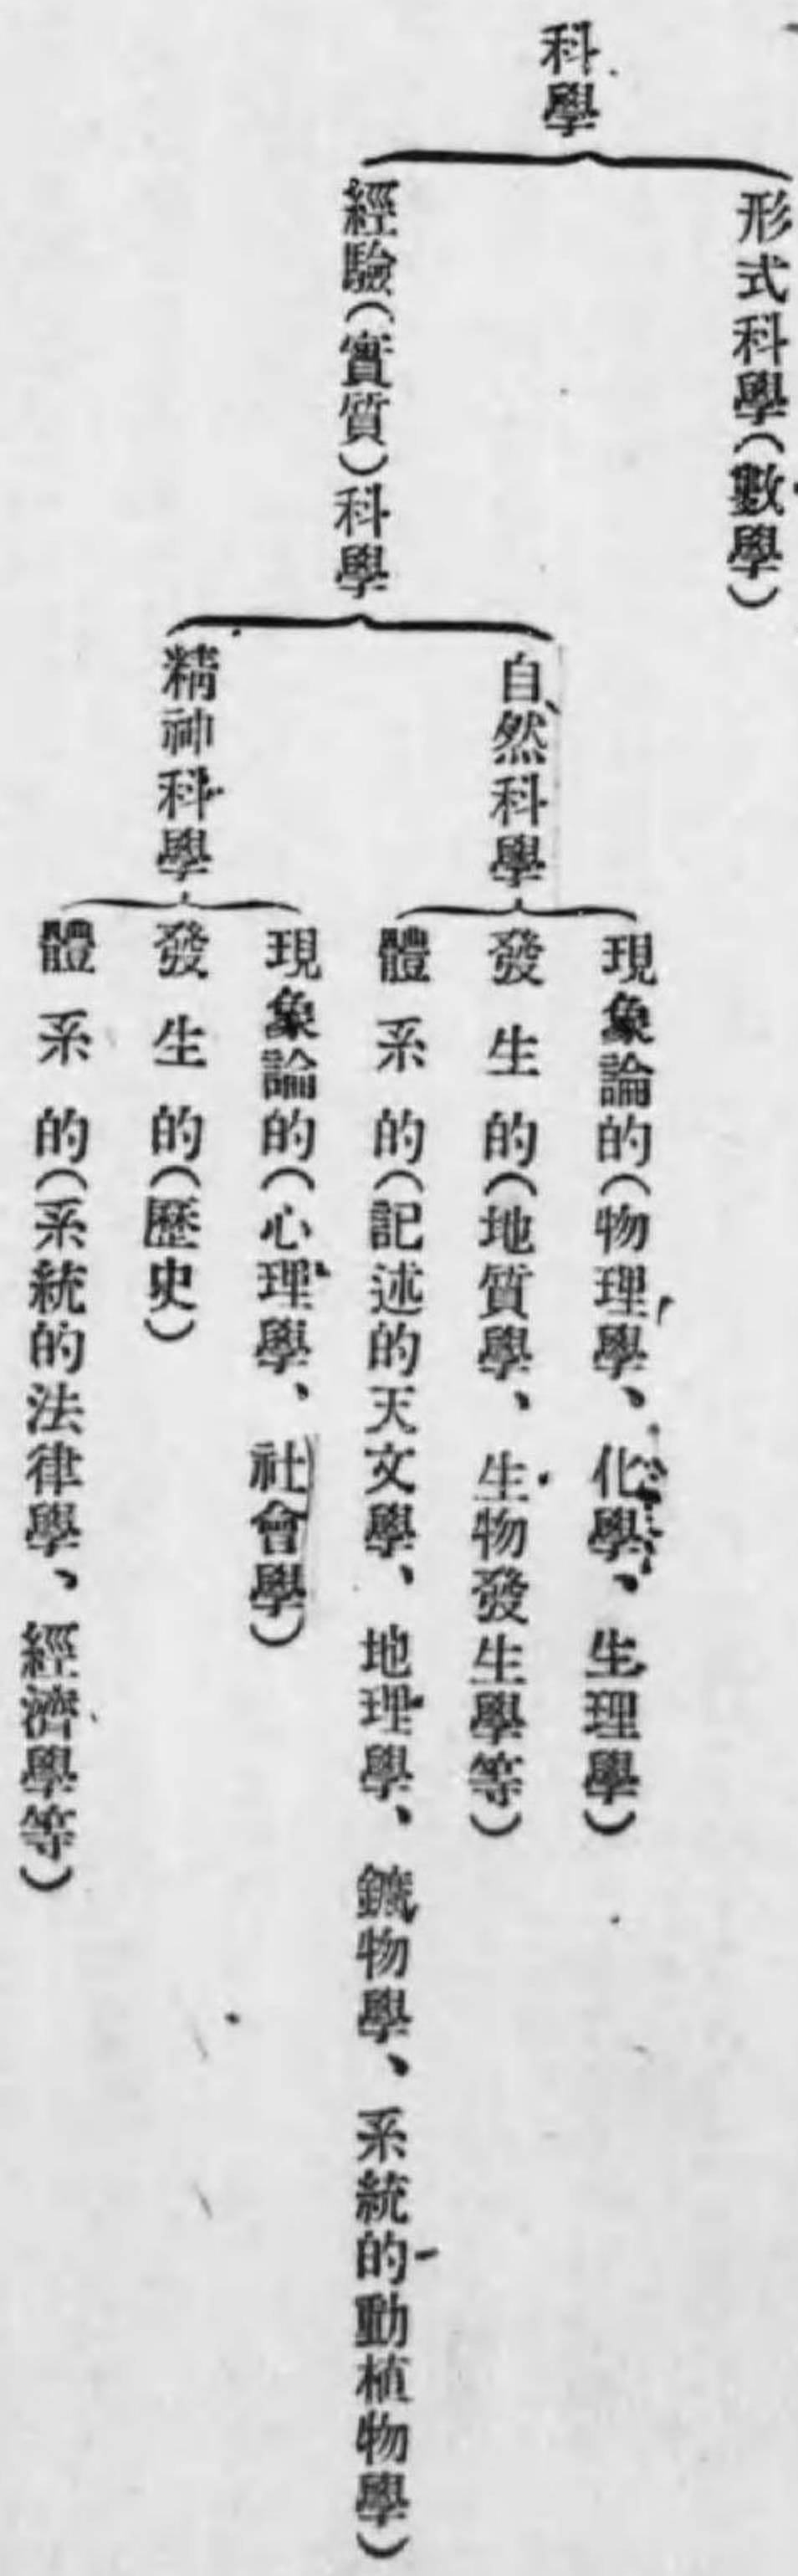 科學
形式科學(數學)
經驗(實質)科學
自然科學
現象論的(物理學、化學、生理學)
發生的(地質學、生物發生學等)
體系的(記述的天文學、地理學、鑛物學、系統的動植物學)
精神科學
現象論的(心理學、社會學)
發生的(歷史)
體系的(系統的法律學、經濟學等)